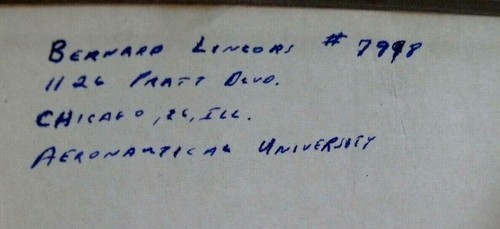 BERNARD LINCORS # 7998
1126 PRATT BLVD.
CHICAGO, 26, ILL.
AERONAUTICAL UNIVERSITY